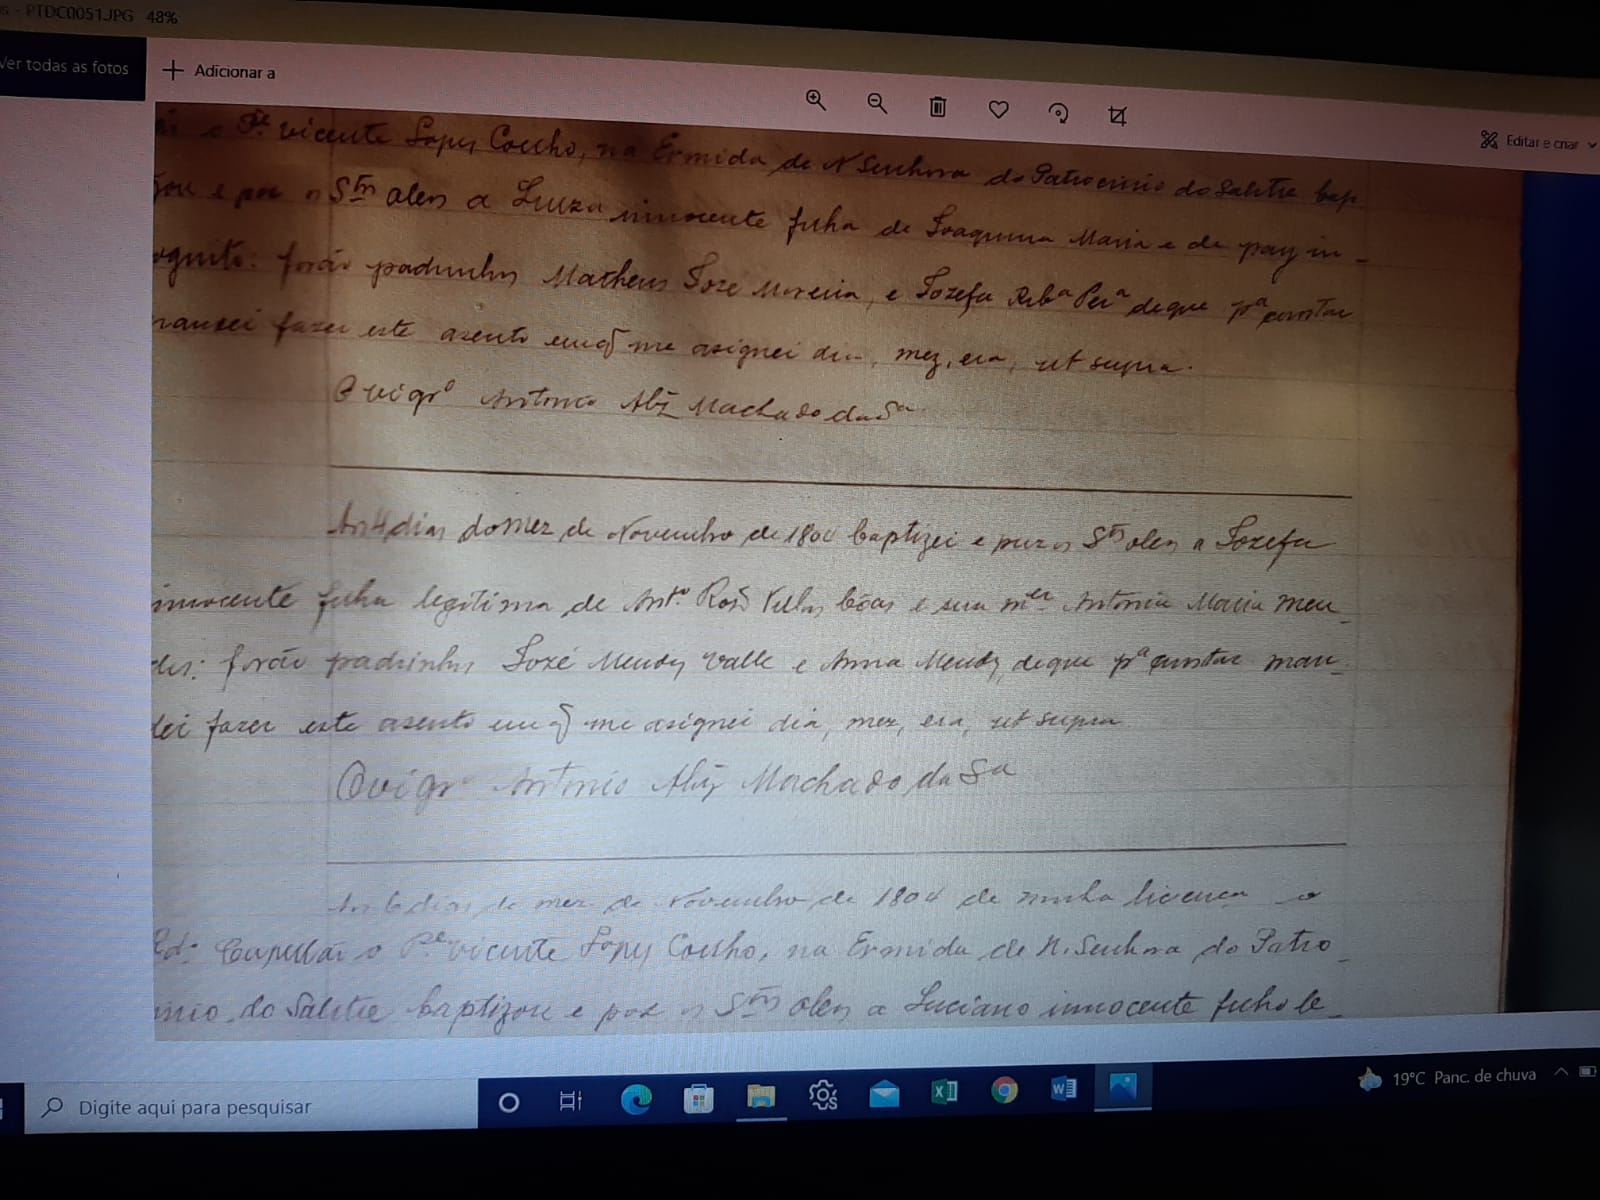 PTDC0051.JPG 48%
Ver todas as fotos
Adicionar a
Editar e criar
o Pe. vicente Lopes Coelho, na Ermida de N Senhora do Patrocinio do Salitre bap
e poz os Stos oleos a Luiza innocente filha de Joaquina Maria e de pay in-
ognito: forão padrinhos Matheus Joze Moreira, e Jozefa Rba Pera de que pa constar
mandei fazer este asento em q̃ me asignei dia, mez, era, ut supra.
O vigro Antonio Alz Machado da Sa
Aos 4 dias do mez de Novembro de 1804 baptizei e puz os Stos oleos a Jozefa
innocente filha legitima de Anto Roiz Villas bôas e sua mer Antonia Maria Men_
des: forão padrinhos José Mendes Valle e Anna Mendes, de que pa constar man_
dei fazer este asento em q̃ me asignei dia, mez, era, ut supra
O vigro Antonio Alz Machado da Sa
Aos 6 dias do mez de Novembro de 1804 de minha licença o
Rdo Capellão o Pe vicente Lopes Coelho, na Ermida de N. Senhora do Patro_
inio do Salitre baptizou e poz os Stos oleos a Luciano innocente filho le_
Digite aqui para pesquisar
19°C Panc. de chuva